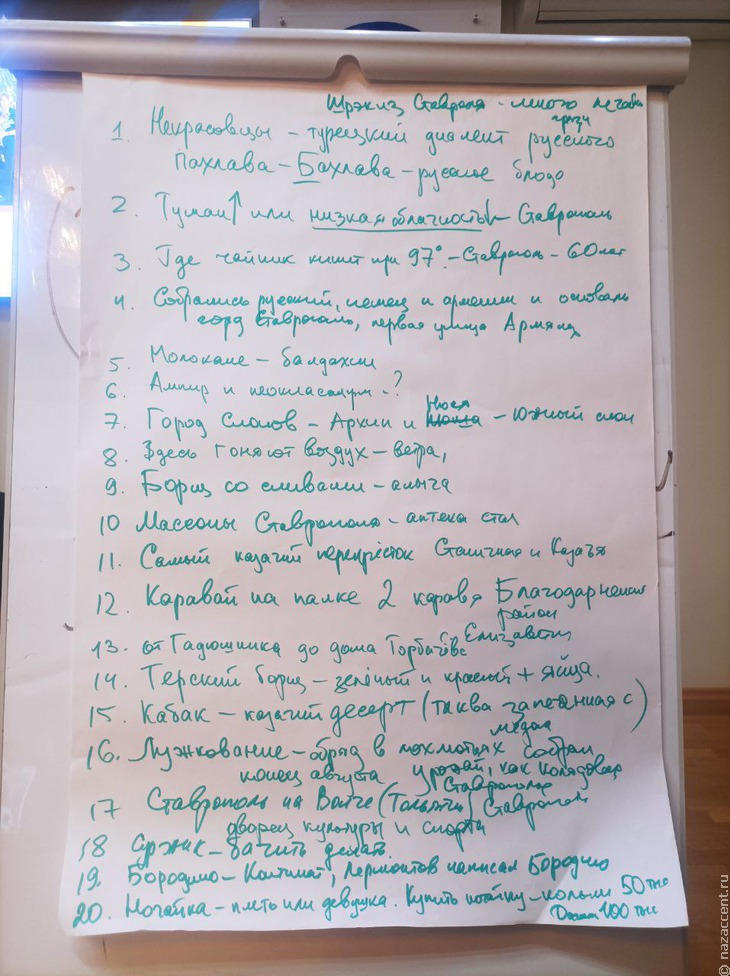 Шрэкиз Ставраля - много лечебн
грязи
1. Некрасовцы - турецкий диалект русского
Пахлава - Бахлава - русское блюдо
2. Туман↑ или низкая облачность↓ Ставрополь
3. Где чайник кипит при 97° - Ставрополь - 60 лет
4. Собрались русский, немец и армянин и основали
город Ставрополь, первая улица Армянск
5. Молокане - балдахин
6. Ампир и неокласицизм - ?
7. Город Слонов - Архип и Нося - Южный слон
8. Здесь гоняют воздух - ветра,
9. Борщ со сливами - алыча
10 Масоны Ставрополя - аптека стал
11. Самый казачий перекрёсток Станичная и Казачья
12. Каравай на палке 2 каравая Благодарненский
район
13. от Гадюшника до дома Горбачёва Елизавет
14. Терский борщ - зелёный и красный + яйца.
15. Кабак - казачий десерт (тыква запечённая с
медом)
16. Лужкование - обряд в лохмотьях собрали
конец августа урожай, как колядовая
Ставрополье
17 Ставрополь на Волге (Тольятти) Ставрополь
дворец культуры и спорта
18 Суржик - бачить делать
19. Бородино - Лермонтов написал Бородино
20. Ногайка - плеть или девушка. Купить ногайку - калым 50 тыс
100 тыс
© nazaccent.ru